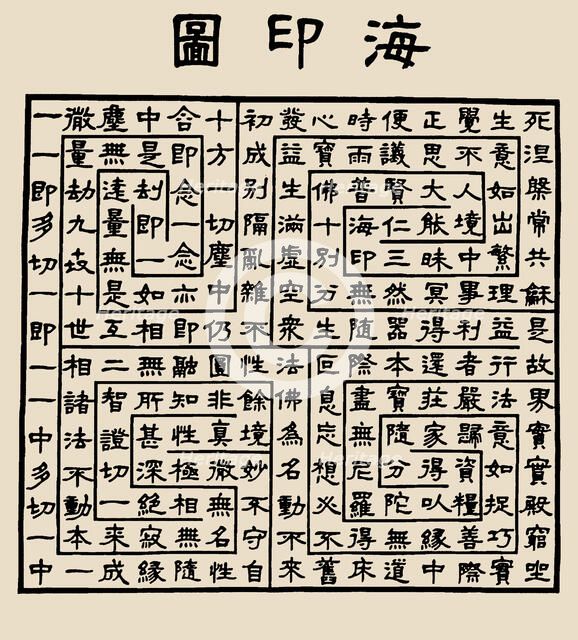 海印圖
死涅槃常共穌是故界實實殿窮坐
生意如出繁理益行法意如捉巧實
覺不人境中事利者嚴歸資糧善際
正思大能昧冥得還莊家得以緣中
便議賢仁三然器本寶隨分陀無道
時雨普海印無随際盡無尼羅得床
心寶佛十別分生叵息忘想必不舊
發益生滿虛空衆法佛為名動不來
初成別隔亂雜不性餘境妙不守自
十方一切塵中仍圓非真微無名性
含即念一念亦即融知性極相無隨
中是劫即一如相無所甚深絕寂緣
塵無遠量無是互二智證切一來成
微量劫九世十世相諸法不動本一
一一即多切一即一一中多切一中